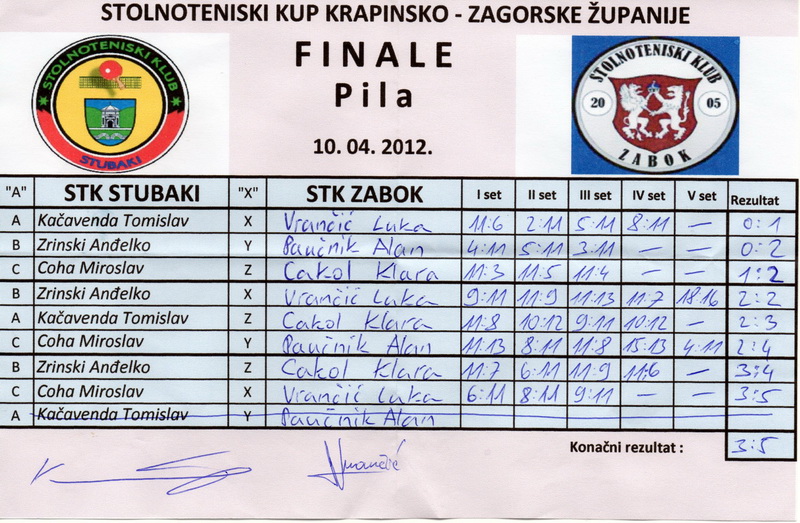 STOLNOTENISKI KUP KRAPINSKO - ZAGORSKE ŽUPANIJE
STOLNOTENISKI KLUB
STUBAKI
FINALE
Pila
10. 04. 2012.
STOLNOTENISKI KLUB
20 05
ZABOK
"A" STK STUBAKI "X" STK ZABOK I set II set III set IV set V set Rezultat
A Kačavenda Tomislav X Vrančić Luka 11:6 2:11 5:11 8:11 — 0:1
B Zrinski Anđelko Y Paučnik Alan 4:11 5:11 3:11 — — 0:2
C Coha Miroslav Z Cakol Klara 11:3 11:5 11:4 — — 1:2
B Zrinski Anđelko X Vrančić Luka 9:11 11:9 11:13 11:7 18:16 2:2
A Kačavenda Tomislav Z Cakol Klara 11:8 10:12 9:11 10:12 — 2:3
C Coha Miroslav Y Paučnik Alan 11:13 8:11 11:8 15:13 4:11 2:4
B Zrinski Anđelko Z Cakol Klara 11:7 6:11 11:9 11:6 — 3:4
C Coha Miroslav X Vrančić Luka 6:11 8:11 9:11 — — 3:5
A Kačavenda Tomislav Y Paučnik Alan
Konačni rezultat : 3:5